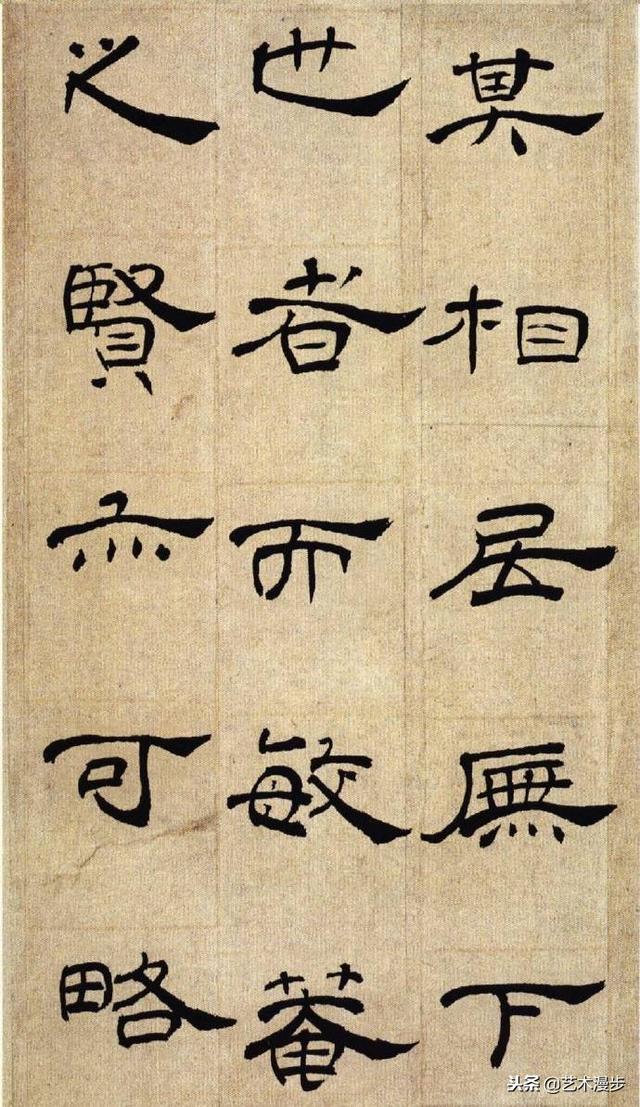 其相居廡下
也者而敏菴
之賢亦可略
头条 @艺术漫步